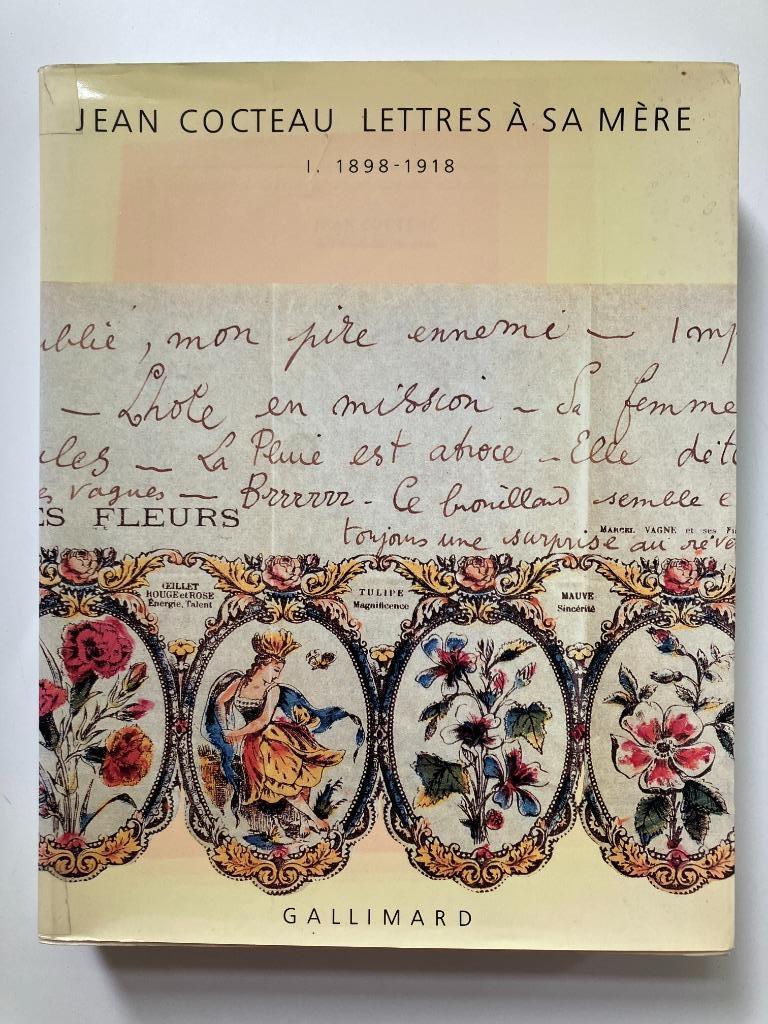 JEAN COCTEAU LETTRES À SA MÈRE
I. 1898-1918
ublié, mon pire ennemi — Imp
— Lhote en mission — Sa femme
ules — La Pluie est atroce — Elle dét
es vagues — Brrrrrrr - Ce brouillard semble e
ES FLEURS
MARCEL VAGNE et ses Fi
toujours une surprise au réve
ŒILLET
ROUGE et ROSE
Énergie, Talent
TULIPE
Magnificence
MAUVE
Sincérité
GALLIMARD